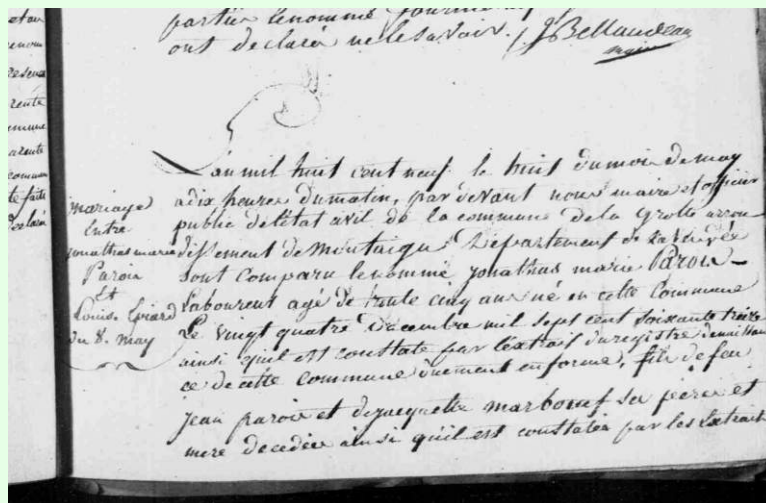 ont déclaré ne le savoir. J Bellaudeau
maire
L'an mil huit cent neuf le huit du mois de may
a dix heures du matin, par devant nous maire et officier
public de l'état civil de la commune de la Grolle arron
dissement de montaigu Département de la vendée
sont comparu le nommé jonathas marie Paroir
Laboureur agé de trente cinq ans né en cette Commune
Le vingt quatre Décembre mil sept cent soixante treize
ainsi qu'il est constaté par l'extrait du registre de naissan
ce de cette commune duement en forme, fils de feu
jean paroir et de jacquette marboeuf ses père et
mere décédés ainsi qu'il est constaté par les Extrait
mariage
Entre
jonathas marie
Paroir
Et
Louise
du 8. may